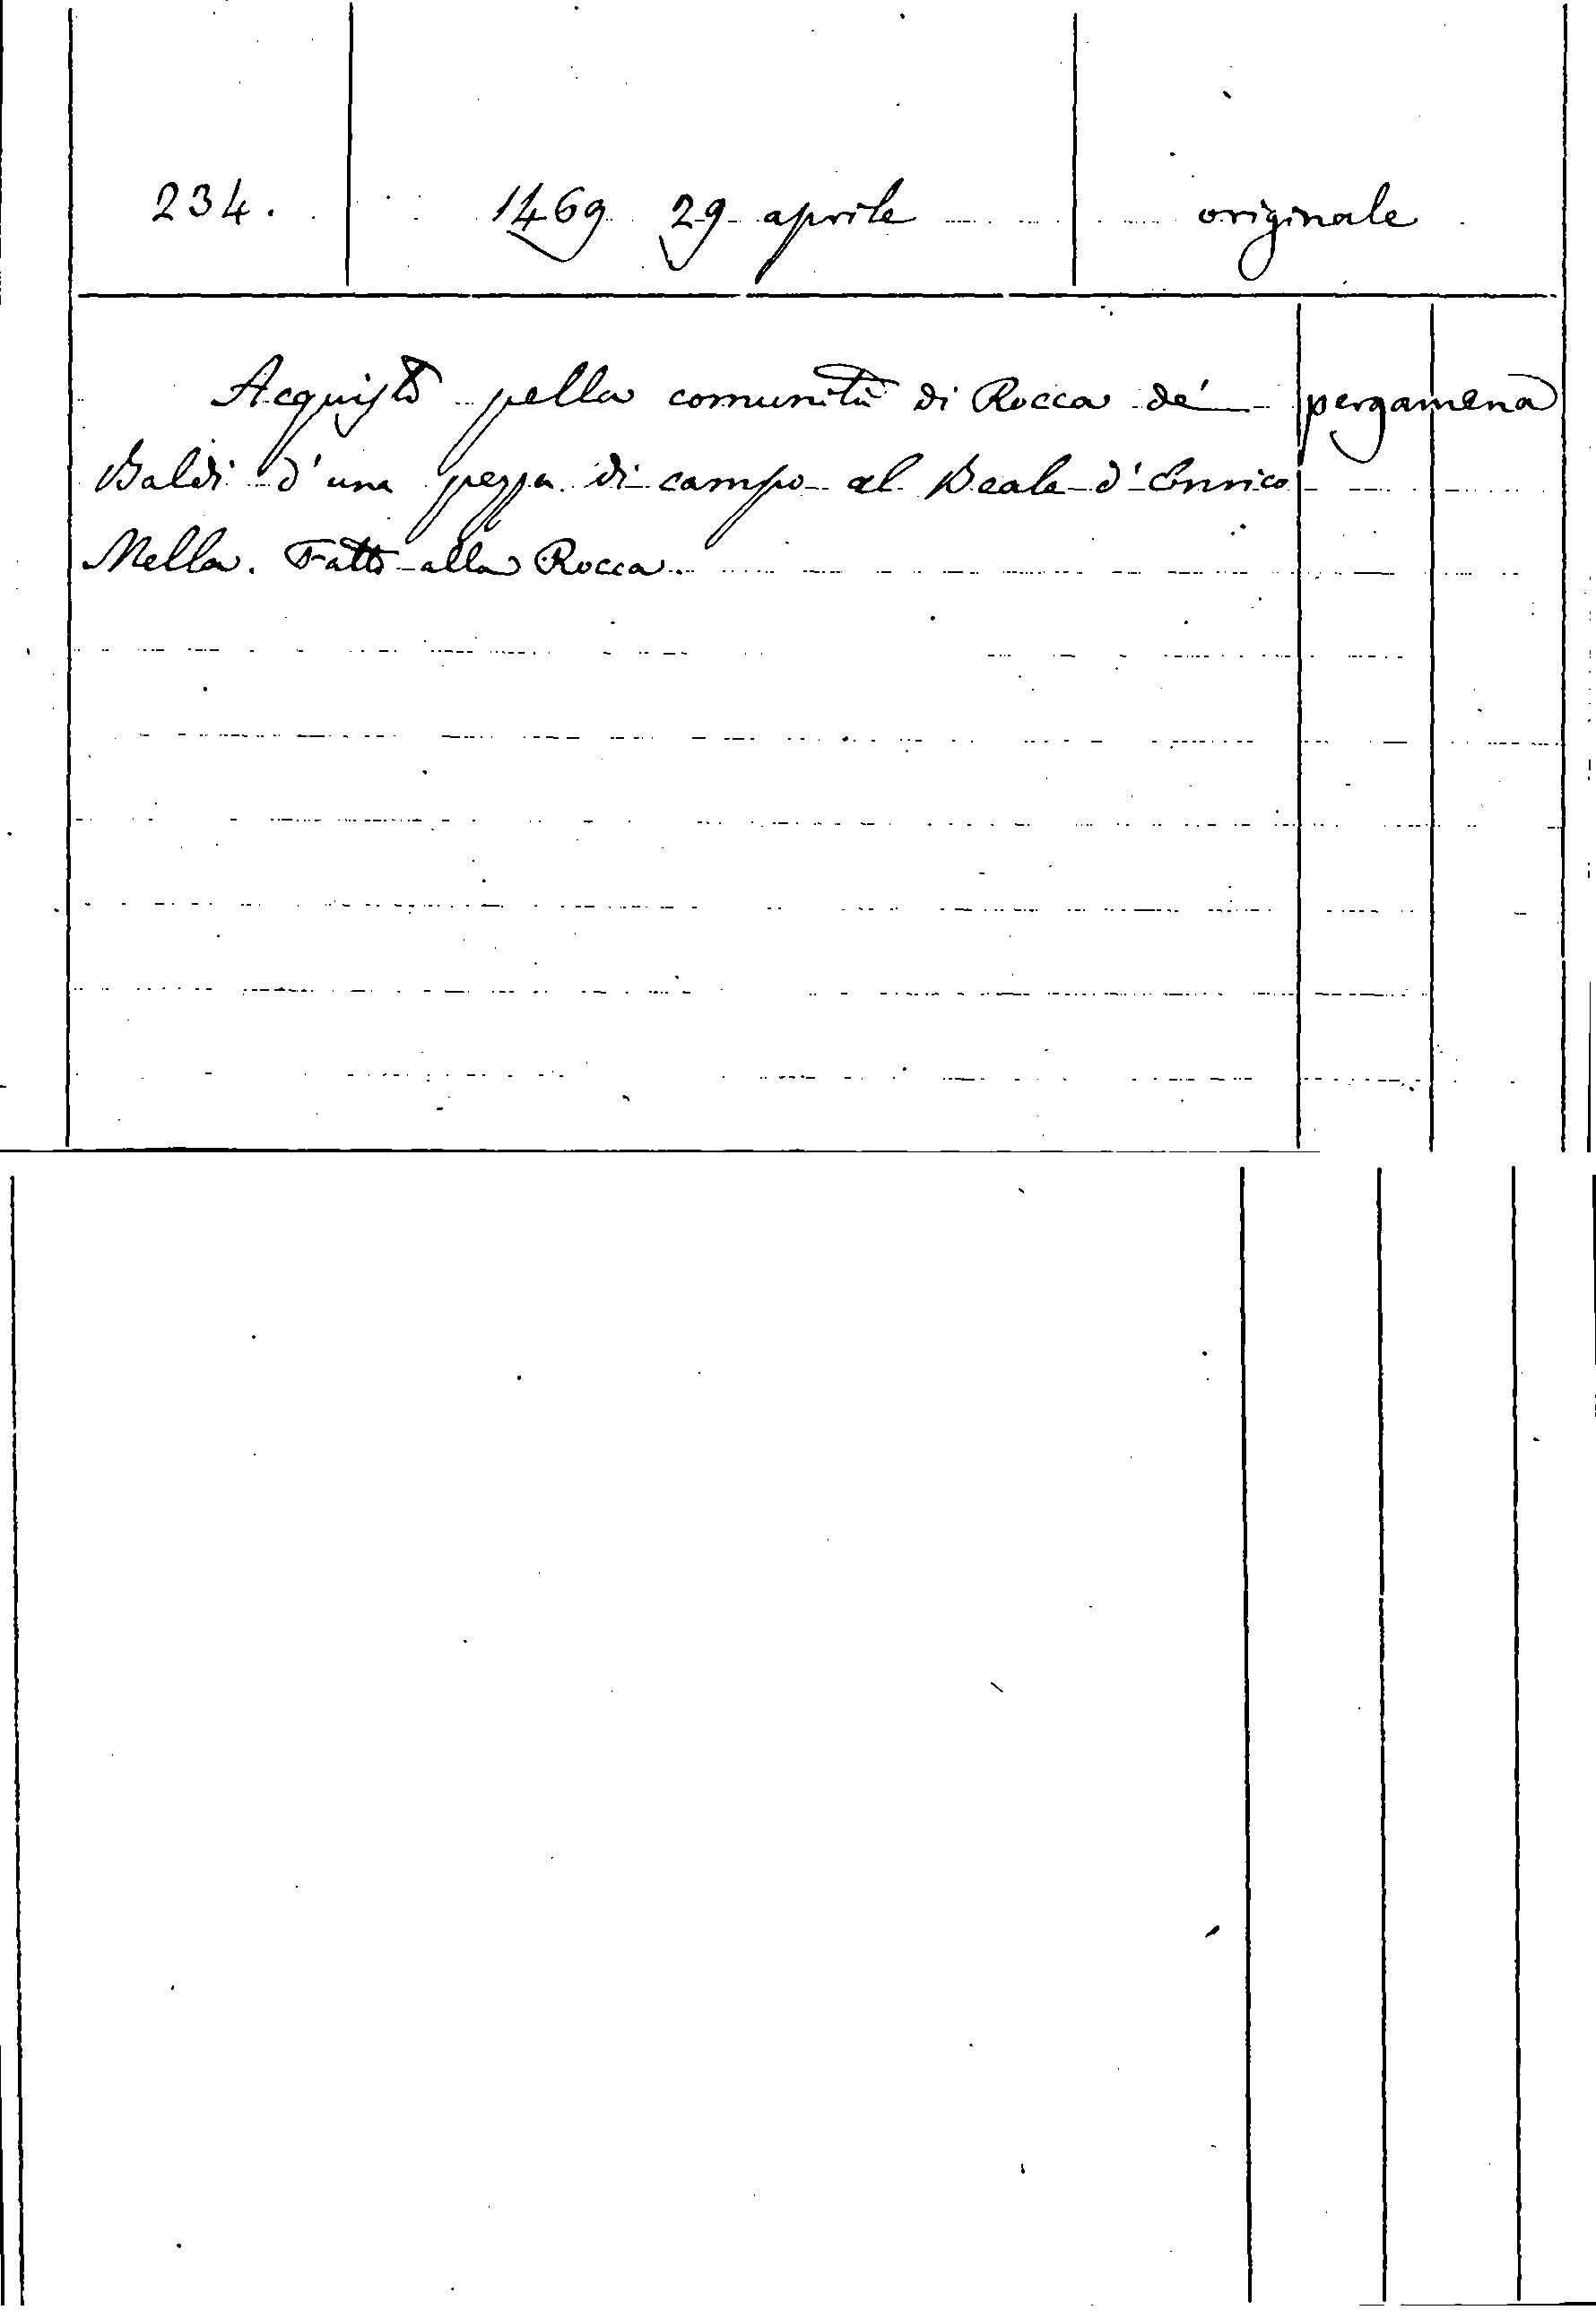 234. 1469 29 aprile originale
Acquisto pella comunità di Rocca de' pergamena
Baldi d'una pezza di campo al Beale d'Enrico
Mella. Fatto alla Rocca.